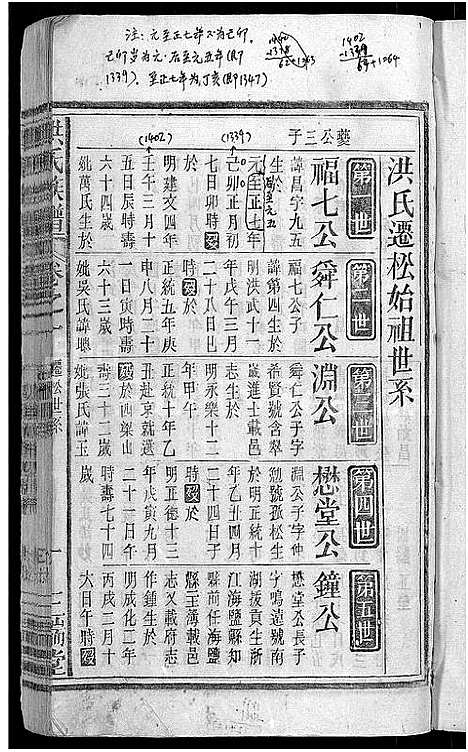 注：元至正七年不为己卯，
己卯岁为元·后至元五年（即
1339）．至正七年为丁亥（即1347）
1402
-1339
63+1=64
(1402)
(1339)
洪氏遷松始祖世系
第一世
福七公
藝公三子
諱昌字九五
生於
元至正七年
后至元五
己卯正月初
七日卯時歿
於
明建文四年
壬午三月十
五日辰時壽
六十四歲
妣萬氏生於
第二世
舜仁公
福七公子
諱第四生於
明洪武十一
年戊午三月
二十八日巳
時歿於
正統五年庚
申八月二十
一日寅時壽
六十三歲
妣吳氏諱
第三世
淵公
舜仁公子字
希賢號含翠
歲進士載邑
志生於
明永樂十二
年甲午
正統十年乙
丑赴京就選
歿於西梁山
壽三十二歲
妣張氏諱玉
第四世
懋堂公
淵公子字仲
勉號孤松生
於明正統十
年乙丑四月
二十四日子
時歿於
明正德十三
年戊寅九月
二十一日午
時壽七十四
歲
第五世
鐘公
懋堂公長子
字鳴遠號南
湖拔貢生所
江海鹽縣知
縣前任海鹽
縣主簿載府
志又載邑志
作鍾生於
明成化二年
丙戌二月十
大日午時歿
洪氏族譜
卷之一
遷松世系
一